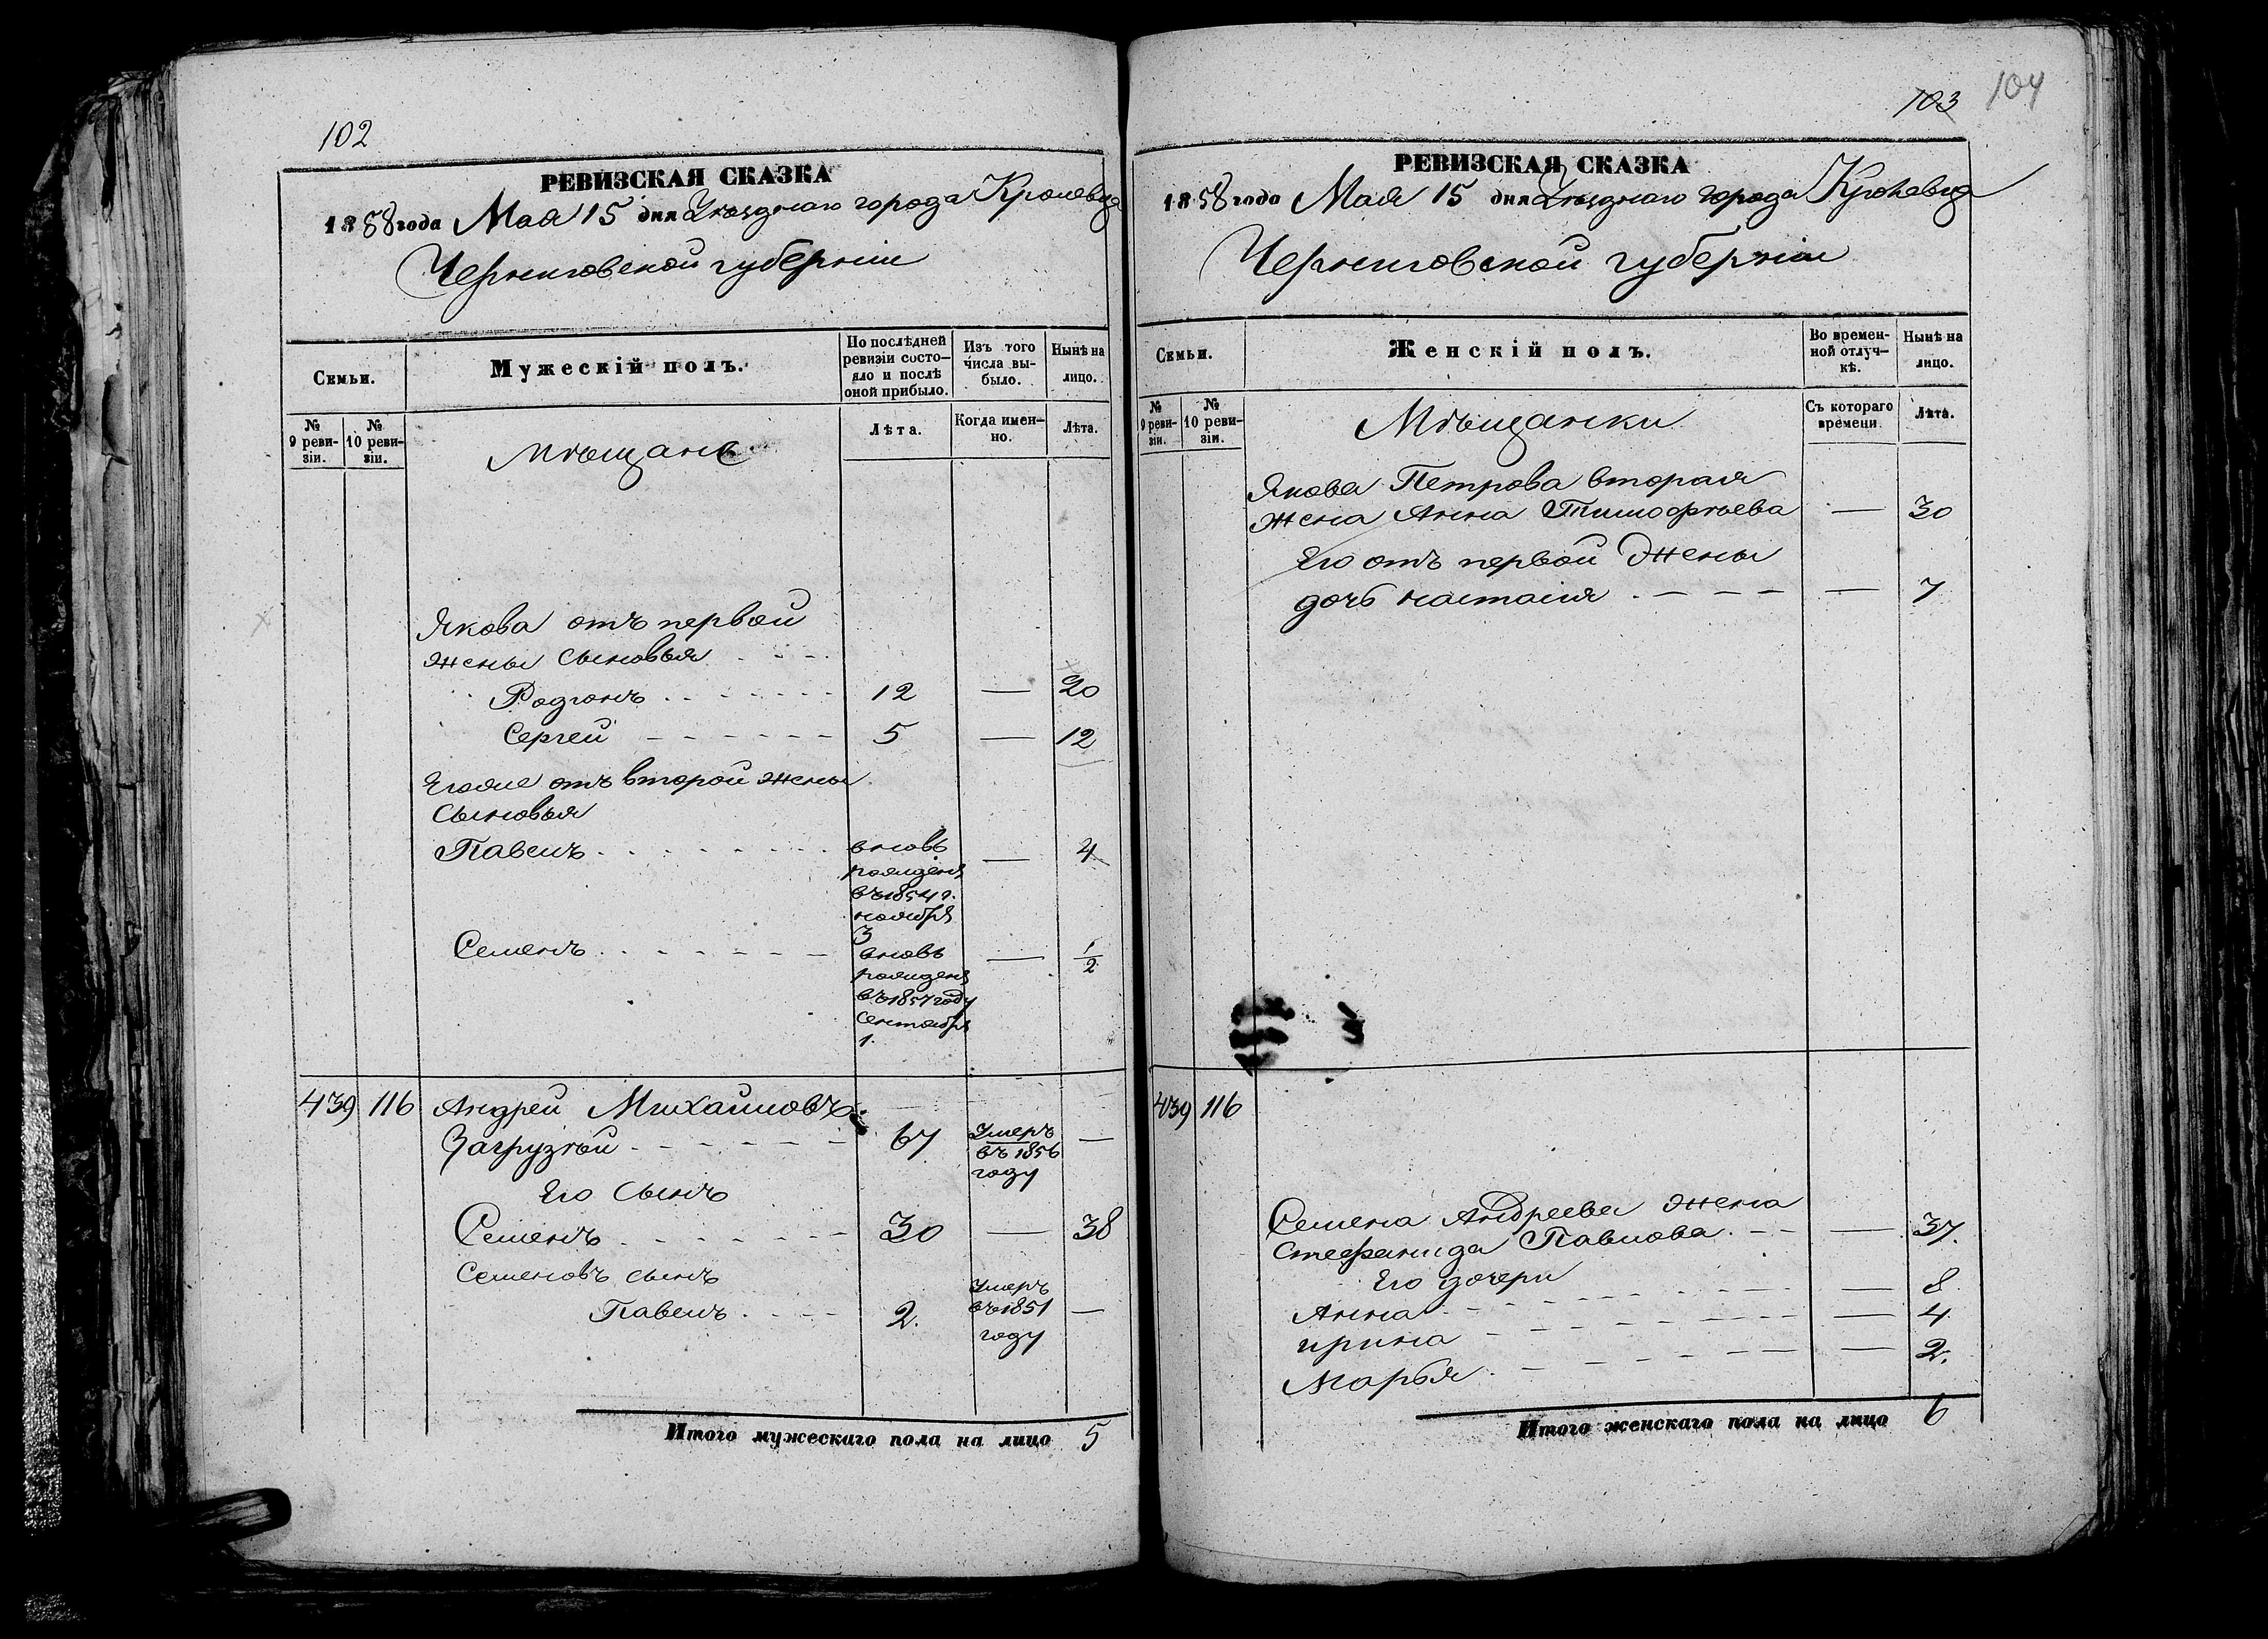 102
РЕВИЗСКАЯ СКАЗКА
1858 года Мая 15 дня Уѣзднаго города Кролевца
Черниговской губерніи
Семьи.
Мужескій полъ.
По послѣдней ревизіи состояло и послѣ оной прибыло.
Изъ того числа выбыло.
Нынѣ на лицо.
№ 9 ревизіи.
№ 10 ревизіи.
Мѣщане
Лѣта.
Когда именно.
Лѣта.
Якова отъ первой
жены сыновья
Родіонъ 12 — 20
Сергей 5 — 12
Егоже отъ второй жены
сыновья
Павелъ — 4
вновь
рожденъ
въ 1854 г.
ноября
3
Семенъ — 1/2
вновь
рожденъ
въ 1857 году
сентября
1.
439 116 Андрей Михайловъ
Загрузкой 67 —
Умеръ
въ 1856
году
Его сынъ
Семенъ 30 — 38
Семеновъ сынъ
Павелъ 2. —
Умеръ
въ 1851
году
Итого мужескаго пола на лицо 5
103 104
РЕВИЗСКАЯ СКАЗКА
1858 года Мая 15 дня Уѣзднаго города Кролевца
Черниговской губерніи
Семьи.
Женскій полъ.
Во временной отлучкѣ.
Нынѣ на лицо.
№ 9 ревизіи.
№ 10 ревизіи.
Мѣщанки
Съ котораго времени
Лѣта.
Якова Петрова вторая
жена Анна Тимофѣева — 30
Его отъ первой жены
дочь настасія — 7
439 116
Семена Андреева жена
Стефанида Павлова — 37.
Его дочери
Анна — 8
ирина — 4
Марья — 2.
Итого женскаго пола на лицо 6